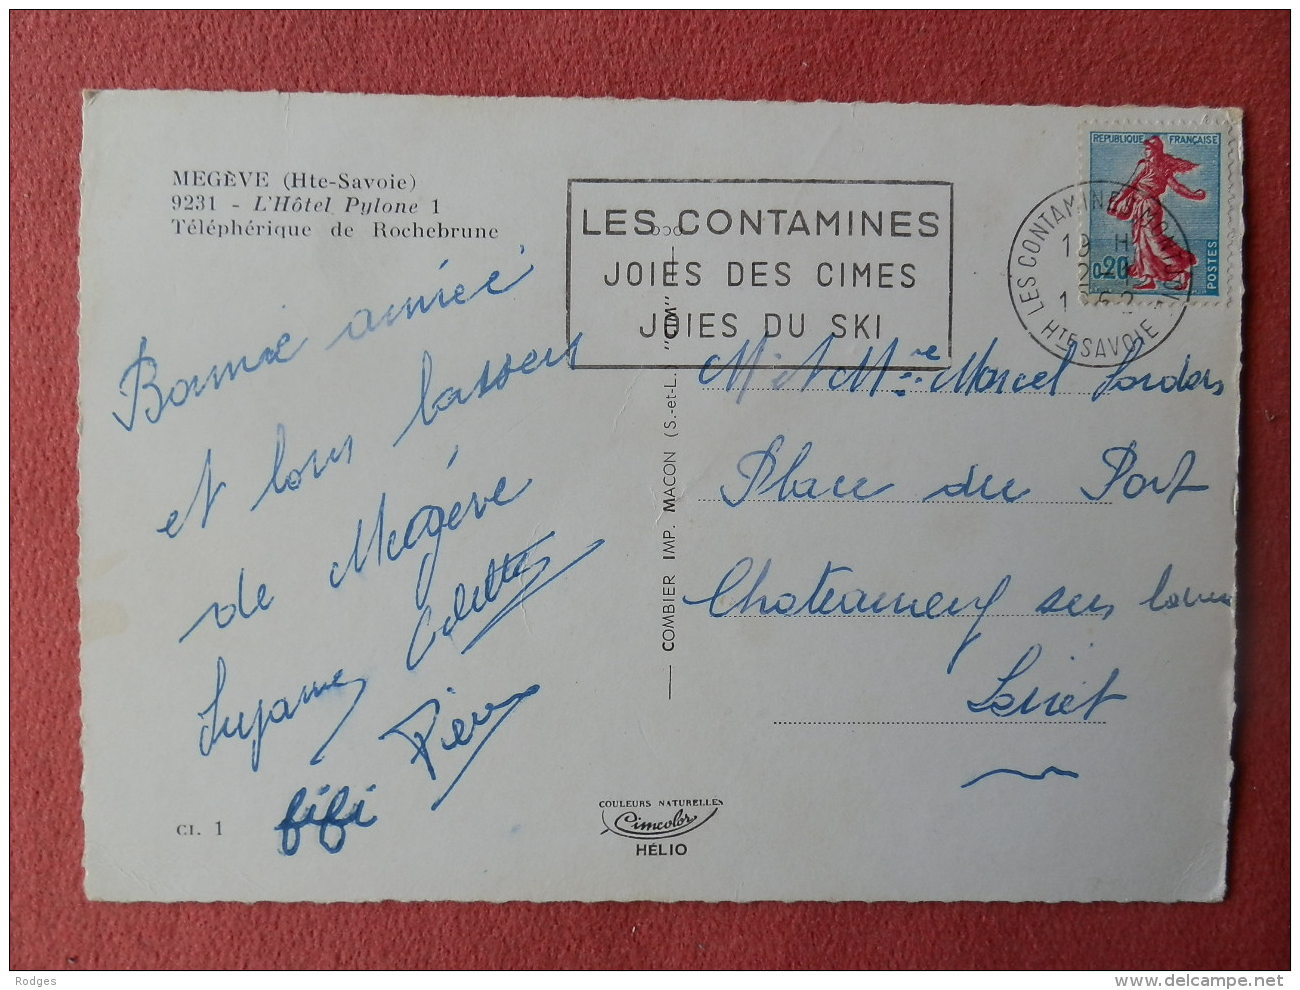 MEGÈVE (Hte-Savoie)
9231 - L'Hôtel Pylone 1
Téléphérique de Rochebrune
LES CONTAMINES
JOIES DES CIMES
JOIES DU SKI
REPUBLIQUE FRANÇAISE
0,20
POSTES
LES CONTAMINES
19 H
HTE SAVOIE
Bonne année
et bons baisers
de Megève
Suzanne Colette
Pierre
fifi
COMBIER IMP. MACON (S.-et-L.) "CIM"
M. et Mme Marcel
Place du Port
Chateauneuf sur Loire
Loiret
CI. 1
COULEURS NATURELLES
Cimcolor
HÉLIO
Rodges
www.delcampe.net